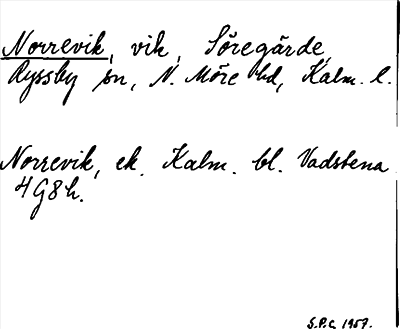 Norrevik, vik, Söregärde,
Ryssby sn, N. Möre hd, Kalm. l.
Norrevik, ek. Kalm. bl. Vadstena
4G8h.
S.P.C. 1957.